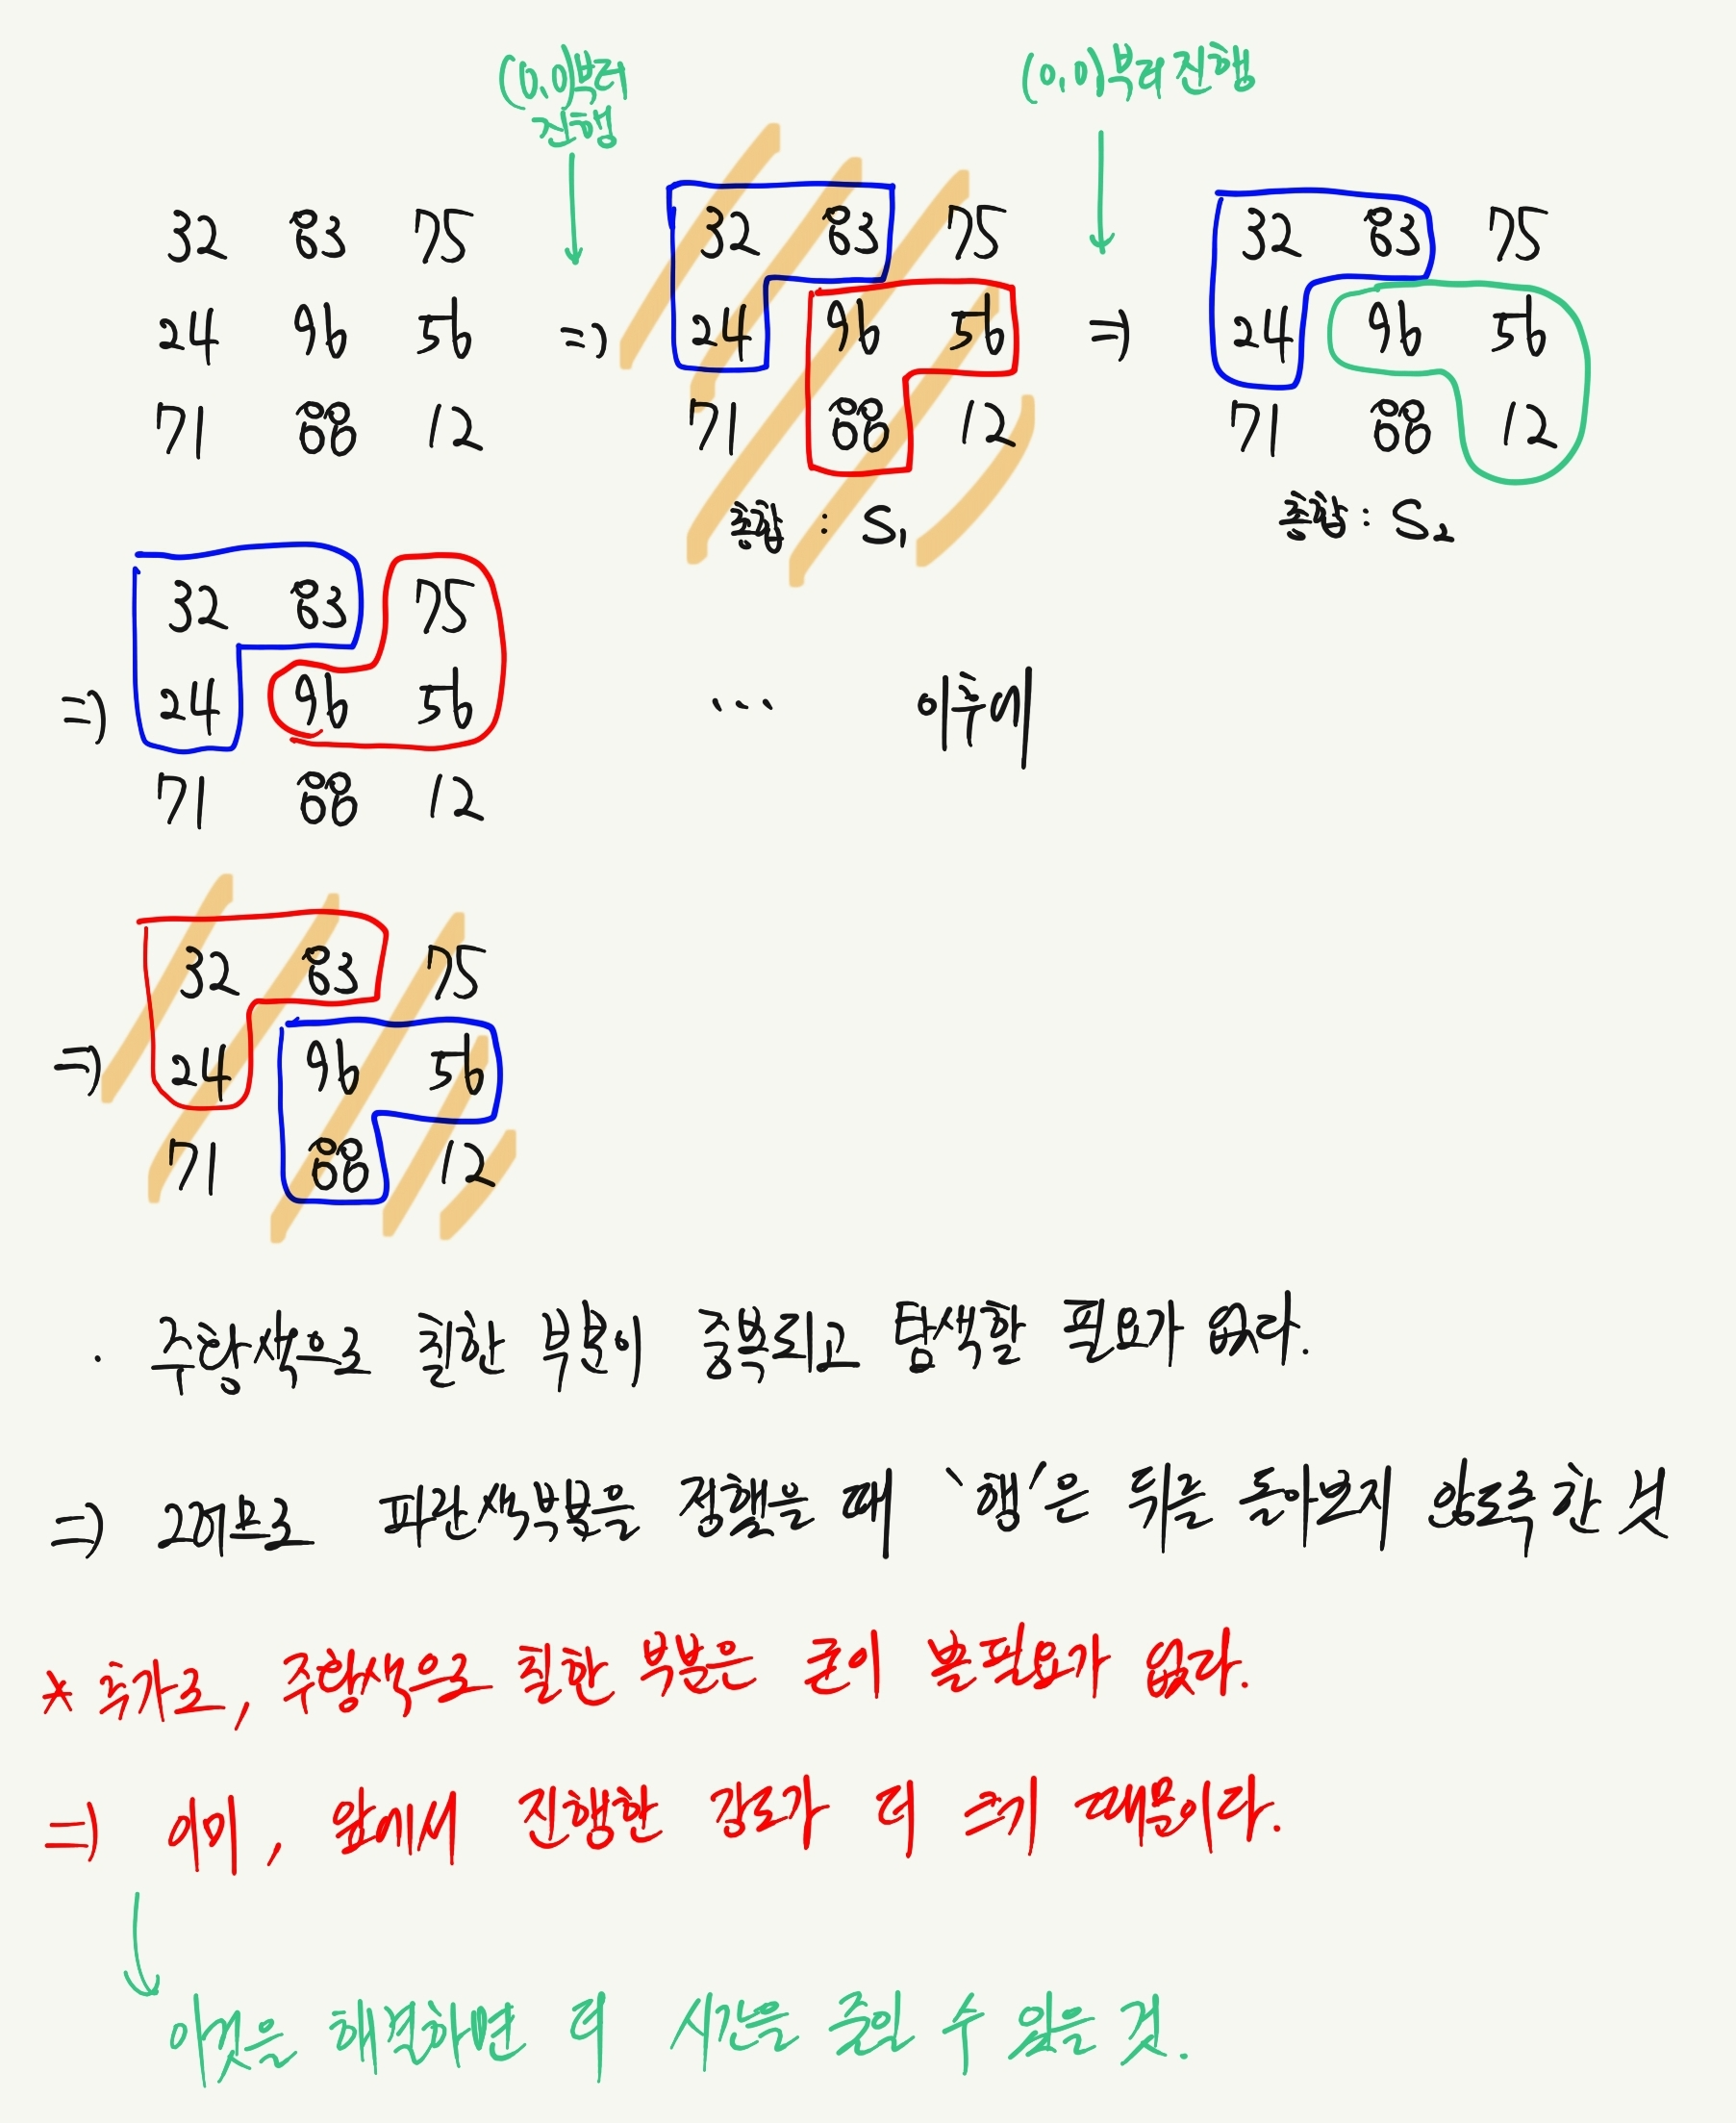 (0,0)부터
진행
(0,0)부터 진행
32 83 75
24 96 56
71 88 12
=>
32 83 75
24 96 56
71 88 12
총합 : S₁
=>
32 83 75
24 96 56
71 88 12
총합 : S₂
=>
32 83 75
24 96 56
71 88 12
... 이후에
=>
32 83 75
24 96 56
71 88 12
· 주황색으로 칠한 부분이 중복되고 탐색할 필요가 없다.
=> 그러므로 파란색부분을 정했을 때 '행'은 뒤를 돌아보지 않도록 한 것
* 추가로, 주황색으로 칠한 부분은 굳이 볼필요가 없다.
=> 이미, 앞에서 진행한 강도가 더 크기 때문이다.
이것을 해결하면 더 시간을 줄일 수 있을 것.